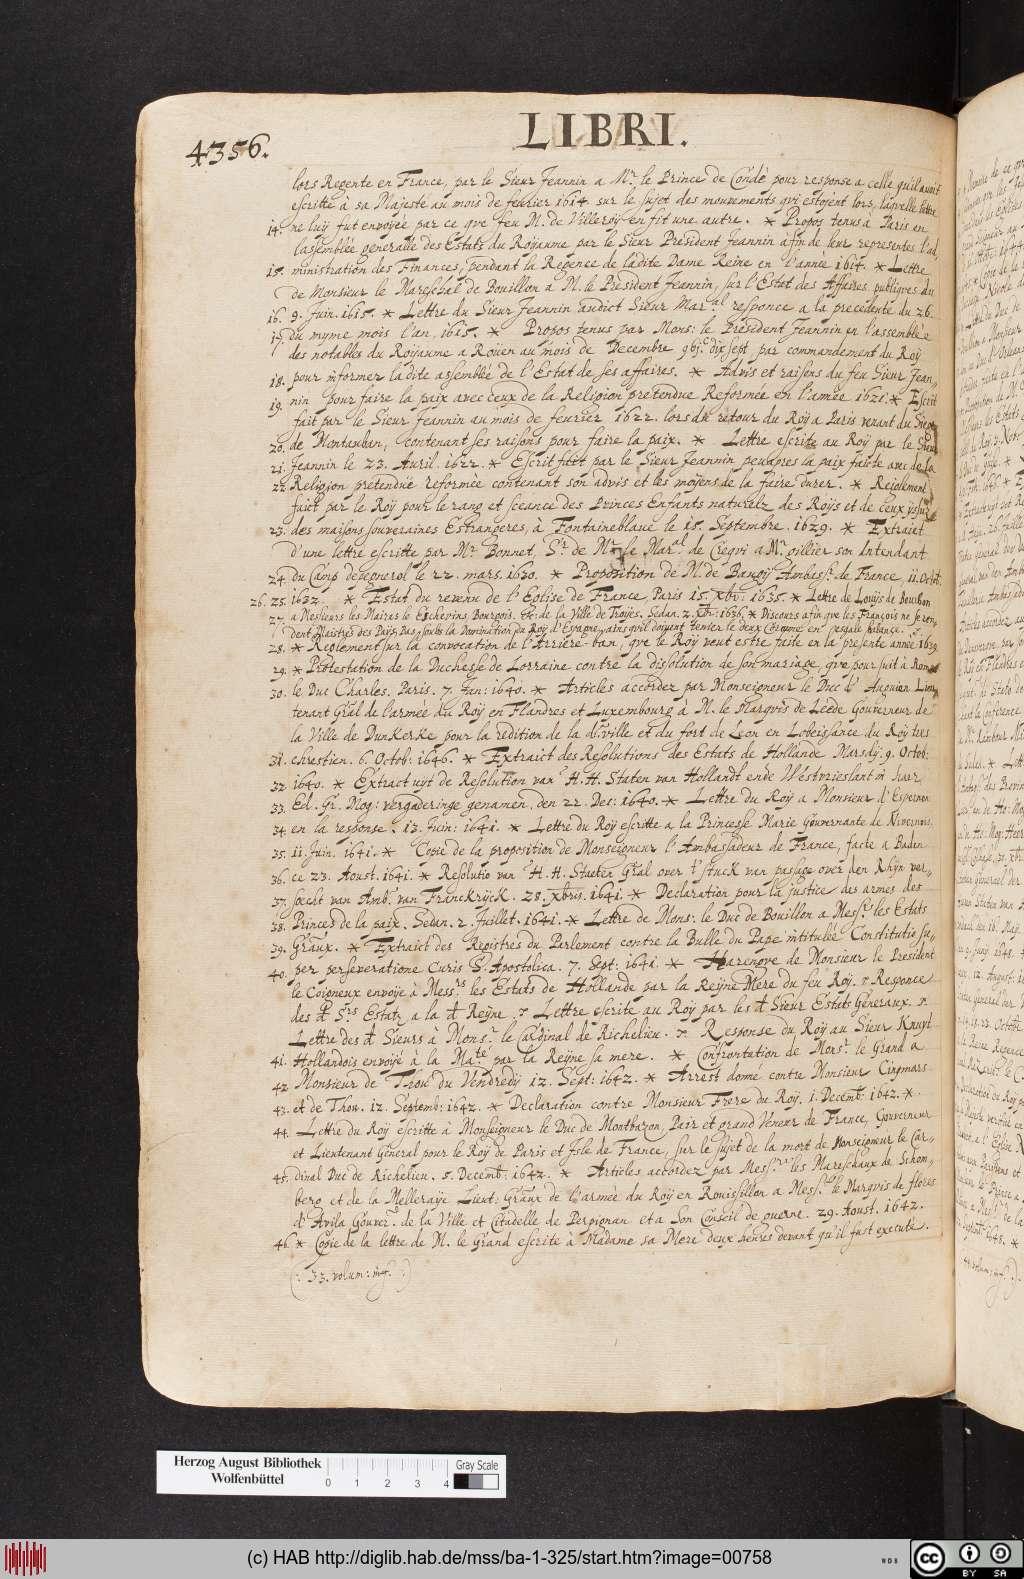 LIBRI.
4356.
lors Regente en France, par le Sieur Jeannin a Mr. le Prince de Condé pour response a celle qu'il avoit
escritte à sa Majesté au mois de feburier 1614 sur le sujet des mouvements qvi estoyent lors, laqvelle lettre
14. ne luÿ fut envoyée par ce qve feu M. de Villeroÿ en fit une autre. * Propos tenus à Paris en
l'assemblée generalle des Estats du Royaume par le Sieur President Jeannin afin de leur representer l'ad,
15. ministration des Finances, pendant la Regence de ladite Dame Reine en l'année 1614. * Lettre
de Monsieur le Mareschal de Bouillon à M. le President Jeannin, sur l'Estat des Affaires publiqves du
16. 9. Juin. 1615. * Lettre du Sieur Jeannin audict Sieur Mar.al responce a la precedente du 26.
17. du mÿme mois l'an. 1615. * Propos tenus par Mons: le President Jeannin en l'assemblée
des notables du Roÿaume a Roüen au mois de Decembre dix sept par commandement du Roÿ
18. pour informer ladite assemblée de l'Estat de ses affaires. * Advis et raisons du feu Sieur Jean,,
19. nin pour faire la paix avec ceux de la Religion pretendue Reformée en l'année 1621. * Escrit
fait par le Sieur Jeannin au mois de feurier 1622. lors du retour du Roÿ a Paris venant du Siege
20. de Montauban, contenant ses raisons pour faire la paix. * Lettre escrite au Roÿ par le Sieur
21. Jeannin le 23. Auril. 1622. * Escrit par le Sieur Jeannin peu apres la paix faicte avec de la
22. Religion pretendue reformée contenant son advis et les moÿens de la faire durer. * Reiglement
faict par le Roÿ pour le rang et sceance des Princes Enfants naturelz des Roÿs et de ceux ÿssuz
23. des maisons souveraines Estrangeres, à Fontaineblau le 15. Septembre. 1629. * Extraict
d'une lettre escritte par Mr. Bonnet, Sr. de Mr. le Mar.al de Creqvi a Mr. oillier son Intendant
24. du Camp de le 22. mars. 1630. * Proposition de M. de Baugÿ Ambass. de France, 11. Octob:
26. 25. 1632. * Estat du revenu de l'Eglise de France, Paris 15. xbr: 1635. * Lettre de Louÿs de Bourbon
27. a Messieurs les Maires le Eschevins Bourgois. Etc: de la Ville de Troÿes. Sedan. 2. xbr: 1636. * Discours afin qve les François ne se ren,
dent Maistres des Païs Bas soubs la Domination du Roÿ d'Espagne, ains qu'il doivent tenser le deux Coronne en esgale balance.
28. * Reglement sur la convocation de l'Arriere-ban, qve le Roÿ veut estre faite en la presente année 1639.
29. * Protestation de la Duchesse de Lorraine contre la dissolution de son mariage, qve pour suit à Rome
30. le Duc Charles. Paris. 7. Jan: 1640. * Articles accordez par Monseigneur le Duc d' Anguien Lieu,,
tenant Gräl de l'armée du Roÿ en Flandres et Luxembourg à M. le Marqvis de Leede Gouverneur de
la Ville de Dunkerke pour la redition de la d. ville et du fort de Leon en L'obeissance du Roÿ tres
31. chrestien. 6. Octob: 1646. * Extraict des Resolutions des Estats de Hollande Marsdÿ: 9. Octob:
32. 1640. * Extract uÿt de Resolution van H.H. Staten van Hollandt ende Westvrieslant in haer
33. Ed. Gr. Mog: vergaderinge genamen, den 22. Dec: 1640. * Lettre du Roÿ a Monsieur d'Espernon
34. en la response. 13. Juin: 1641. * Lettre du Roÿ escritte a la Princesse Marie Gouvernante de Nivernois.
35. 11. Juin. 1641. * Copie de la proposition de Monseigneur l'Ambassadeur de France, faste a Baden
36. ce 23. Aoust. 1641. * Resolutio van H.H. Staeten Gräl over t'stuck van passage over den Rhÿn ver,,
37. soecht van Amb. van Franckrÿck. 28. xbris. 1641. * Declaration pour la justice des armes des
38. Princes de la paix. Sedan. 2. Jullet. 1641. * Lettre de Mons. le Duc de Bouillon a Mess.rs les Estats
39. Gräux. * Extraict des Registres du Parlement contre la Bulle du Pape intitulée Constitutio su,,
40. per perseveratione Curis S. Apostolica. 7. Sept: 1641. * Harengve de Monsieur le President
le Coigneux envoÿé à Mess.rs les Estats de Hollande par la Reÿne Mere du feu Roÿ. Responce
des d. Srs Estatz a la d. Reÿne. Lettre escrite au Roÿ par les d. Sieur Estats Generaux.
Lettre des d. Sieurs à Mons.r le Cardinal de Richelieu. Response du Roÿ au Sieur Knuÿt
41. Hollandois envoÿé à la Ma.te par la Reÿne sa mere. * Confrontation de Mons.r le Grand a
42. Monsieur de Thou du Vendredÿ 12. Sept: 1642. * Arrest donné contre Monsieur Cinqmars
43. et de Thou. 12. Septemb: 1642. * Declaration contre Monsieur Frere du Roÿ. 1. Decemb: 1642. *
44. Lettre du Roÿ escritte à Monseigneur le Duc de Montbazon, Pair et grand Veneur de France, Gouverneur
et Lieutenant General pour le Roÿ de Paris et Isle de France, sur le sujet de la mort de Monseigneur le Car,,
45. dinal Duc de Richelieu. 5. Decemb: 1642. * Articles accordez par Mess.rs les Mareschaux de Schom,,
berg et de la Melleraÿe Lieut: Gräux de l'armée du Roÿ en Rouissillon a Mess.rs le Marqvis de flores
d'Avila Gouver.r de la Ville et Citadelle de Perpignan et a son Conseil de guerre. 29. Aoust. 1642.
46. * Copie de la lettre de M. le Grand escrite à Madame sa Mere deux heures devant qu'il fust executé.
(: 33. volum: :)
Herzog August Bibliothek
Wolfenbüttel
0 1 2 3 4
Gray Scale
(c) HAB http://diglib.hab.de/mss/ba-1-325/start.htm?image=00758
WDB
cc BY SA